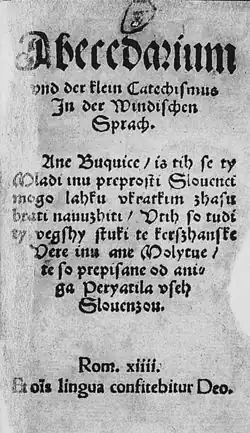 Abecedarium
vnd der klein Catechismus
In der Windischen
Sprach.
Ane Buquice / is tih se ty
Mladi inu preprosti Slouenci
mogo lahku vkratkim zhasu
brati nauuzhiti / Vtih so tudi
ty vegshy stuki te kerszhanske
Vere inu ane Molytue /
te so prepisane od ani-
ga Peryatila vseh
Slouenzou.
Rom. xiiii.
Et oĩs lingua confitebitur Deo.